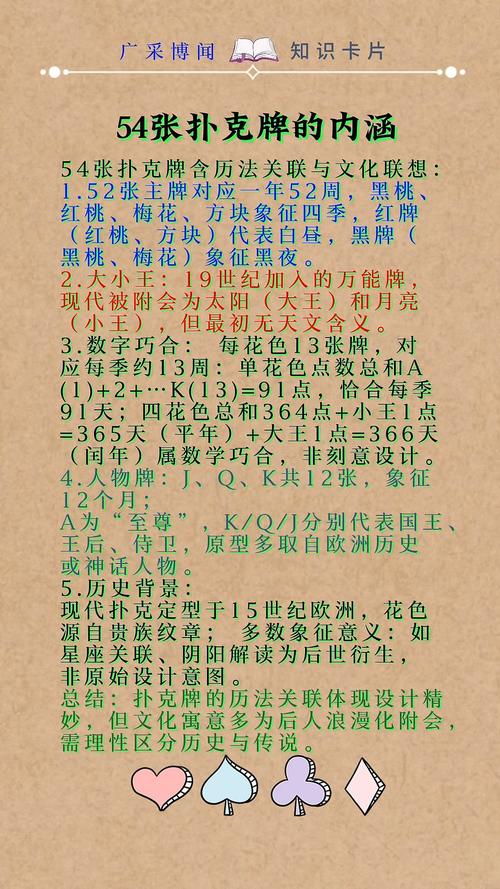 广采博闻 知识卡片
54张扑克牌的内涵
54张扑克牌含历法关联与文化联想：
1.52张主牌对应一年52周，黑桃、
红桃、梅花、方块象征四季，红牌
（红桃、方块）代表白昼，黑牌（
黑桃、梅花）象征黑夜。
2.大小王：19世纪加入的万能牌，
现代被附会为太阳（大王）和月亮
（小王），但最初无天文含义。
3.数字巧合： 每花色13张牌，对
应每季约13周：单花色点数总和A
(1)+2+···K(13)=91点，恰合每季
91天；四花色总和364点+小王1点
=365天（平年）+大王1点=366天
（闰年）属数学巧合，非刻意设计。
4.人物牌：J、Q、K共12张，象征
12个月；
A为“至尊”，K/Q/J分别代表国王、
王后、侍卫，原型多取自欧洲历史
或神话人物。
5.历史背景：
现代扑克定型于15世纪欧洲，花色
源自贵族纹章； 多数象征意义：如
星座关联、阴阳解读为后世衍生，
非原始设计意图。
总结：扑克牌的历法关联体现设计精
妙，但文化寓意多为后人浪漫化附会，
需理性区分历史与传说。